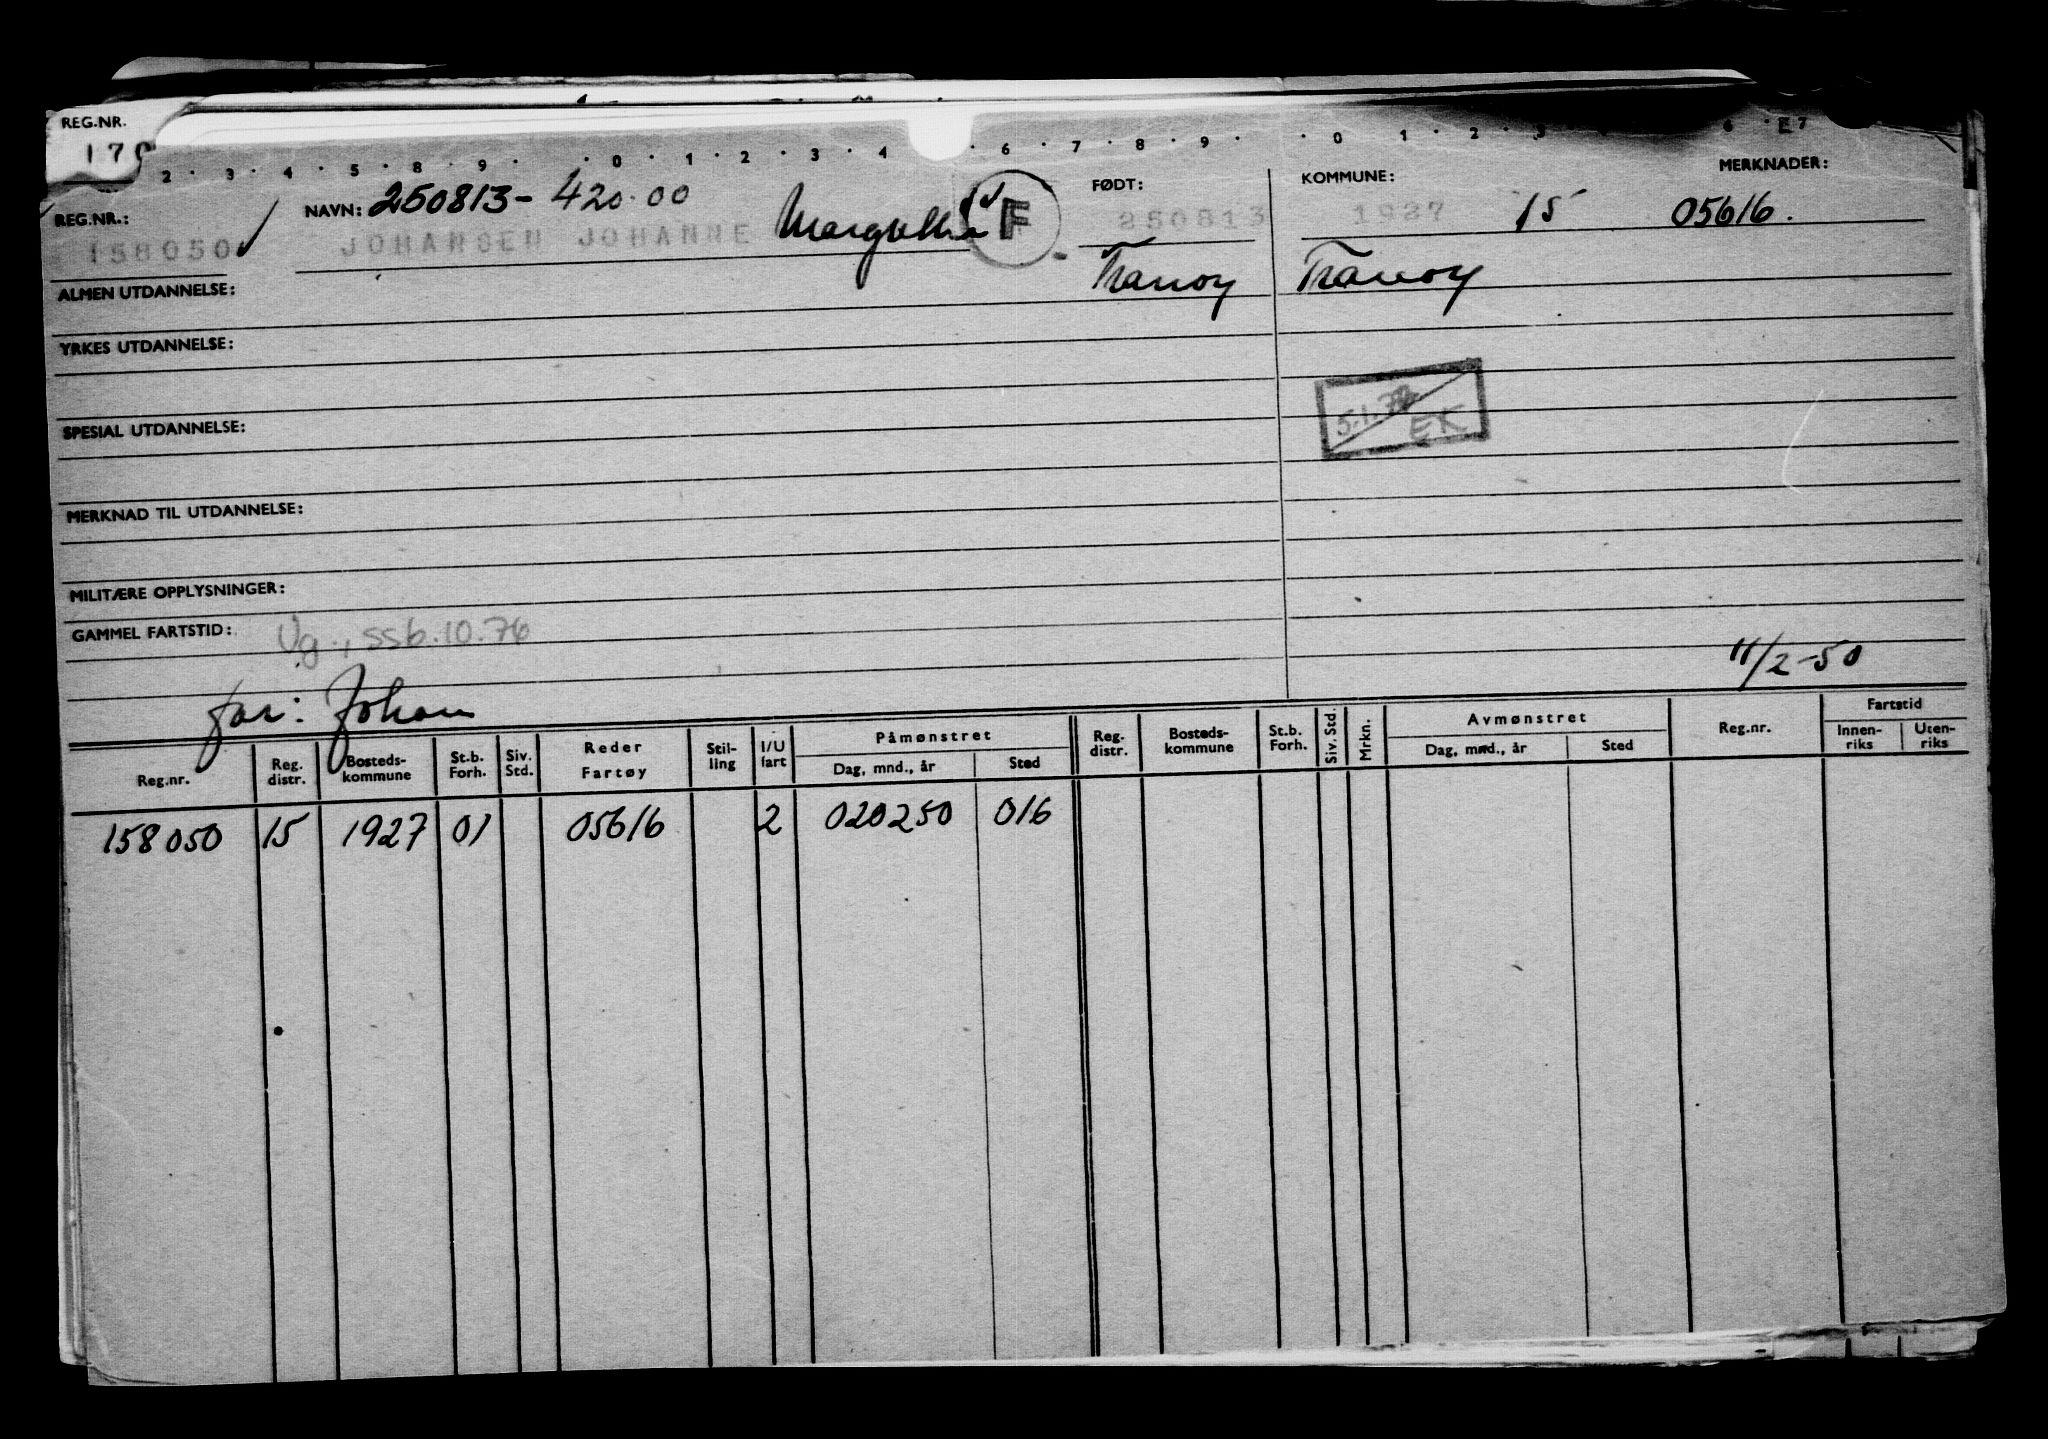 REG.NR.
170
2 . 3 . 4 . 5 . 8 . 9 . . 0 . 1 . 2 . 3 . 4 . 6 . 7 . 8 . 9 . . 0 . 1 . 2 . 3 6 . E7
REG.NR.: NAVN: 250813-420.00 FØDT: KOMMUNE: MERKNADER:
158050 JOHANSEN JOHANNE F 250813 1927 15 05616.
Tranøy Tranøy
ALMEN UTDANNELSE:
YRKES UTDANNELSE:
5.1.72
EK
SPESIAL UTDANNELSE:
MERKNAD TIL UTDANNELSE:
MILITÆRE OPPLYSNINGER:
GAMMEL FARTSTID: Vg., SSB.10.76
11/2-50
far: Johan
Reg.nr. Reg. distr. Bosteds-kommune St.b. Forh. Siv. Std. Reder Fartøy Stil-ling I/U fart Påmønstret Dag, mnd., år Sted Reg. distr. Bosteds-kommune St.b. Forh. Siv. Std. Mrkn. Avmønstret Dag, mnd., år Sted Reg.nr. Fartstid Innen-riks Uten-riks
158050 15 1927 01 05616 2 020250 016